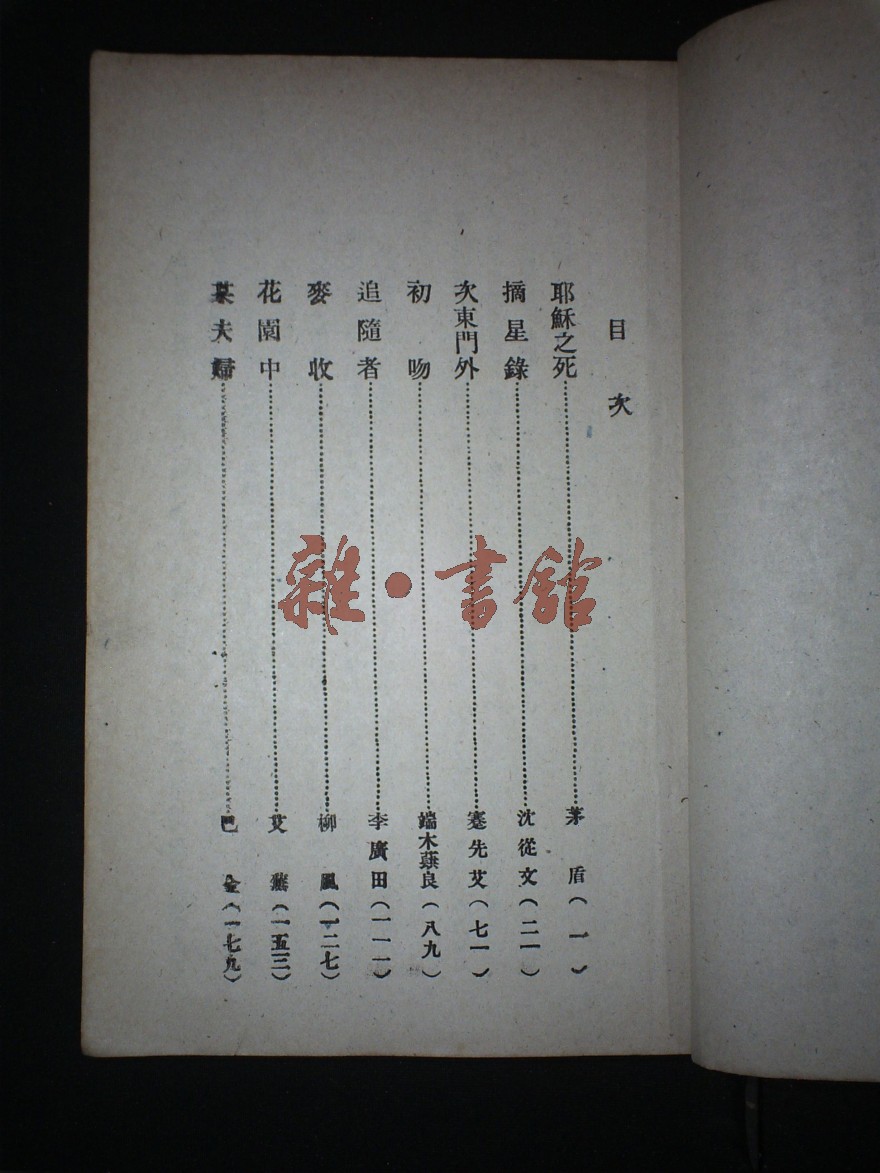 目次
耶穌之死……茅盾（一）
摘星錄……沈從文（二一）
次東門外……蹇先艾（七一）
初吻……端木蕻良（八九）
追隨者……李廣田（一一一）
麥收……柳風（一二七）
花園中……艾蕪（一五三）
某夫婦……巴金（一七九）
雜·書館